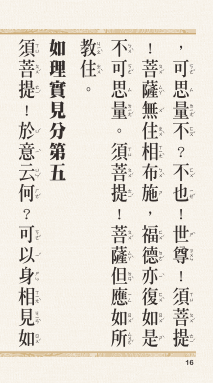 ，可思量不？不也！世尊！須菩提
！菩薩無住相布施，福德亦復如是
不可思量。須菩提！菩薩但應如所
教住。
如理實見分第五
須菩提！於意云何？可以身相見如
16